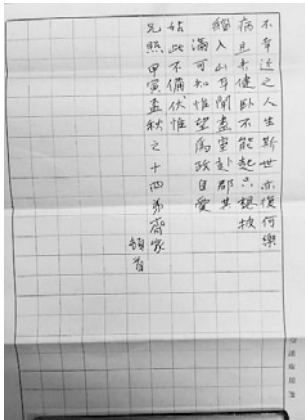 不幸近之人生斯世亦復何樂
病且未健臥不能起只想被
緇入山耳聞盡室赴郡其
滿可知惟望為政自愛
姑此不備伏惟
兄照甲寅孟秋之十四弟齊家
頓首